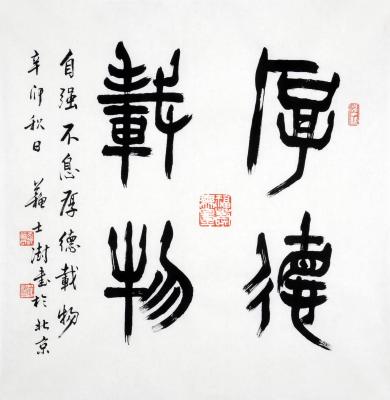 厚德
載物
自强不息厚德載物
辛卯秋日 蘇士澍書於北京